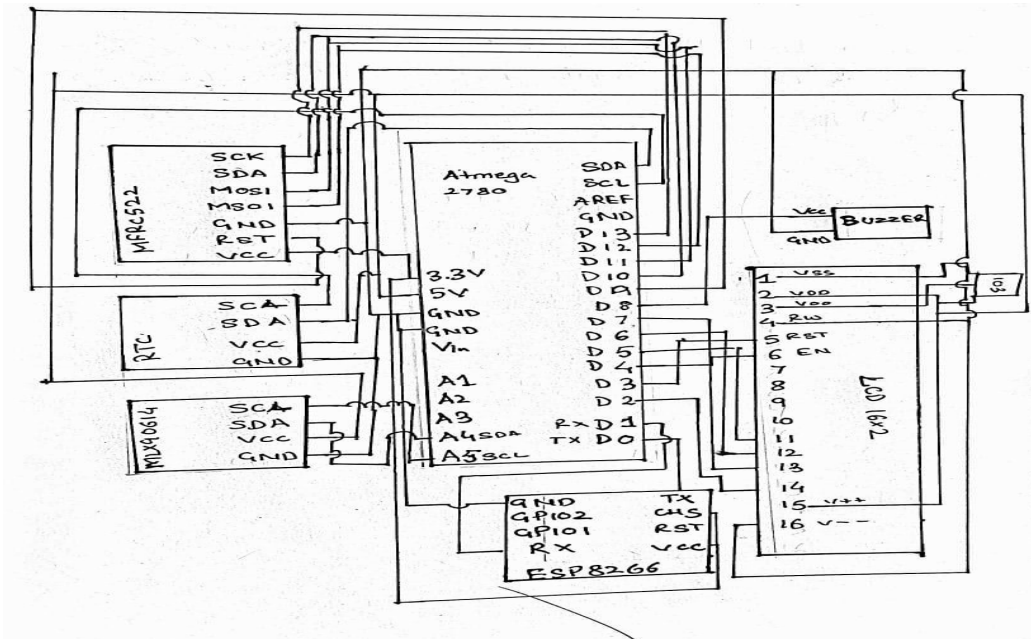 MFRC522
SCK
SDA
MOSI
MSOI
GND
RST
VCC
RTC
SCA
SDA
VCC
GND
MLX90614
SCA
SDA
VCC
GND
Atmega
2780
3.3V
5V
GND
GND
Vin
A1
A2
A3
A4 SDA
A5 SCL
SDA
SCL
AREF
GND
D 13
D 12
D 11
D 10
D 9
D 8
D 7
D 6
D 5
D 4
D 3
D 2
RX D 1
TX D 0
GND
GPIO2
GPIO1
RX
TX
CHS
RST
VCC
ESP8266
Vcc
GND
BUZZER
1 VSS
2 VDD
3 VOO
4 RW
5 RST
6 EN
7
8
9
10
11
12
13
14
15 V++
16 V--
LCD 16x2
103